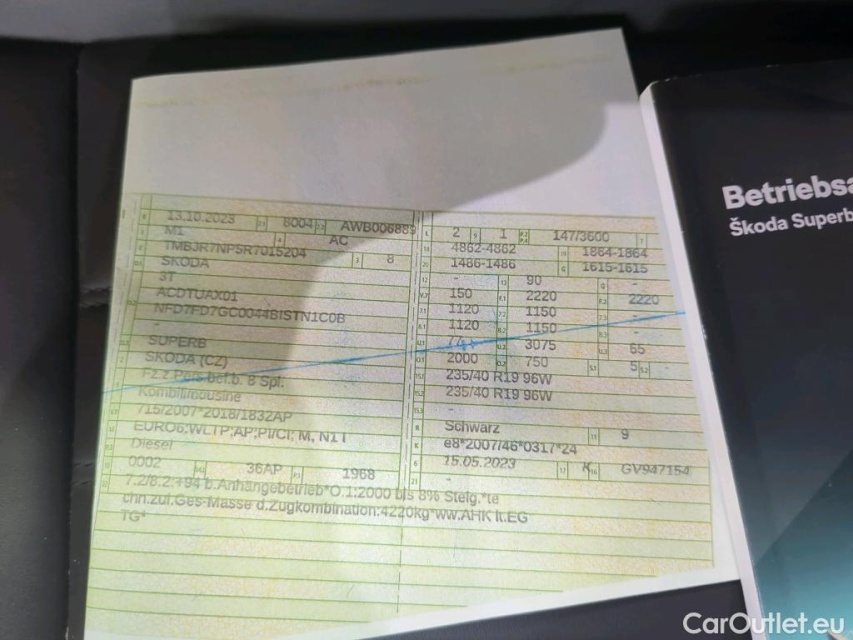 13.10.2023 8004 AWB006889
M1 AC
TMBJR7NP5R7015204 8
SKODA
3T
ACDTUAX01
NFD7FD7GC0044BISTN1C0B
-
SUPERB
SKODA (CZ)
Fz.z.Pers.bef.b. 8 Spl.
Kombilimousine
715/2007*2018/1832AP
EURO6;WLTP;AP;PI/CI; M, N1 I
Diesel
0002 36AP 1968
2 1 147/3600
4862-4862 1864-1864
1486-1486 1615-1615
- 90 -
150 2220 2220
1120 1150 -
1120 1150 -
3075 65
2000 750 5
235/40 R19 96W
235/40 R19 96W
-
Schwarz 9
e8*2007/46*0317*24
15.05.2023 K GV947154
7.2/8.2:+94 b.Anhängebetrieb*O.1:2000 bis 8% Steig.*te
chn.zul.Ges-Masse d.Zugkombination:4220kg*ww.AHK lt.EG
TG*
Betriebsa
Škoda Superb
CarOutlet.eu